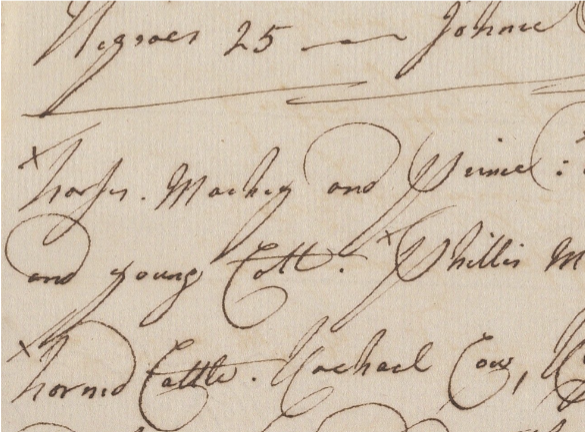 Negroes 25 — Johnne
x horses. Mackey and Prince:
and young Colt. x Phillis M
x horned Cattle. Rachael Cow,